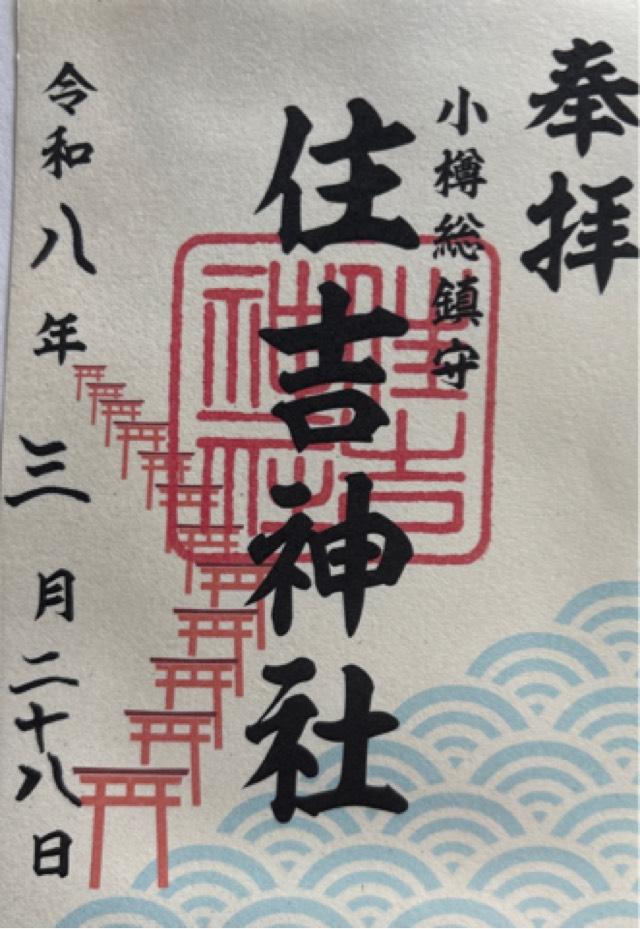 奉拝
小樽総鎮守
住吉神社
住吉神社
令和八年三月二十八日